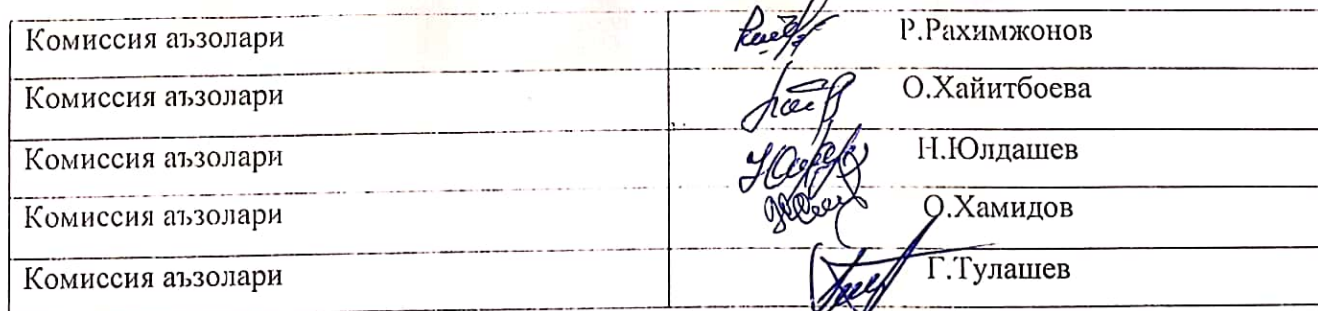 Комиссия аъзолари Р.Рахимжонов
Комиссия аъзолари О.Хайитбоева
Комиссия аъзолари Н.Юлдашев
Комиссия аъзолари О.Хамидов
Комиссия аъзолари Г.Тулашев